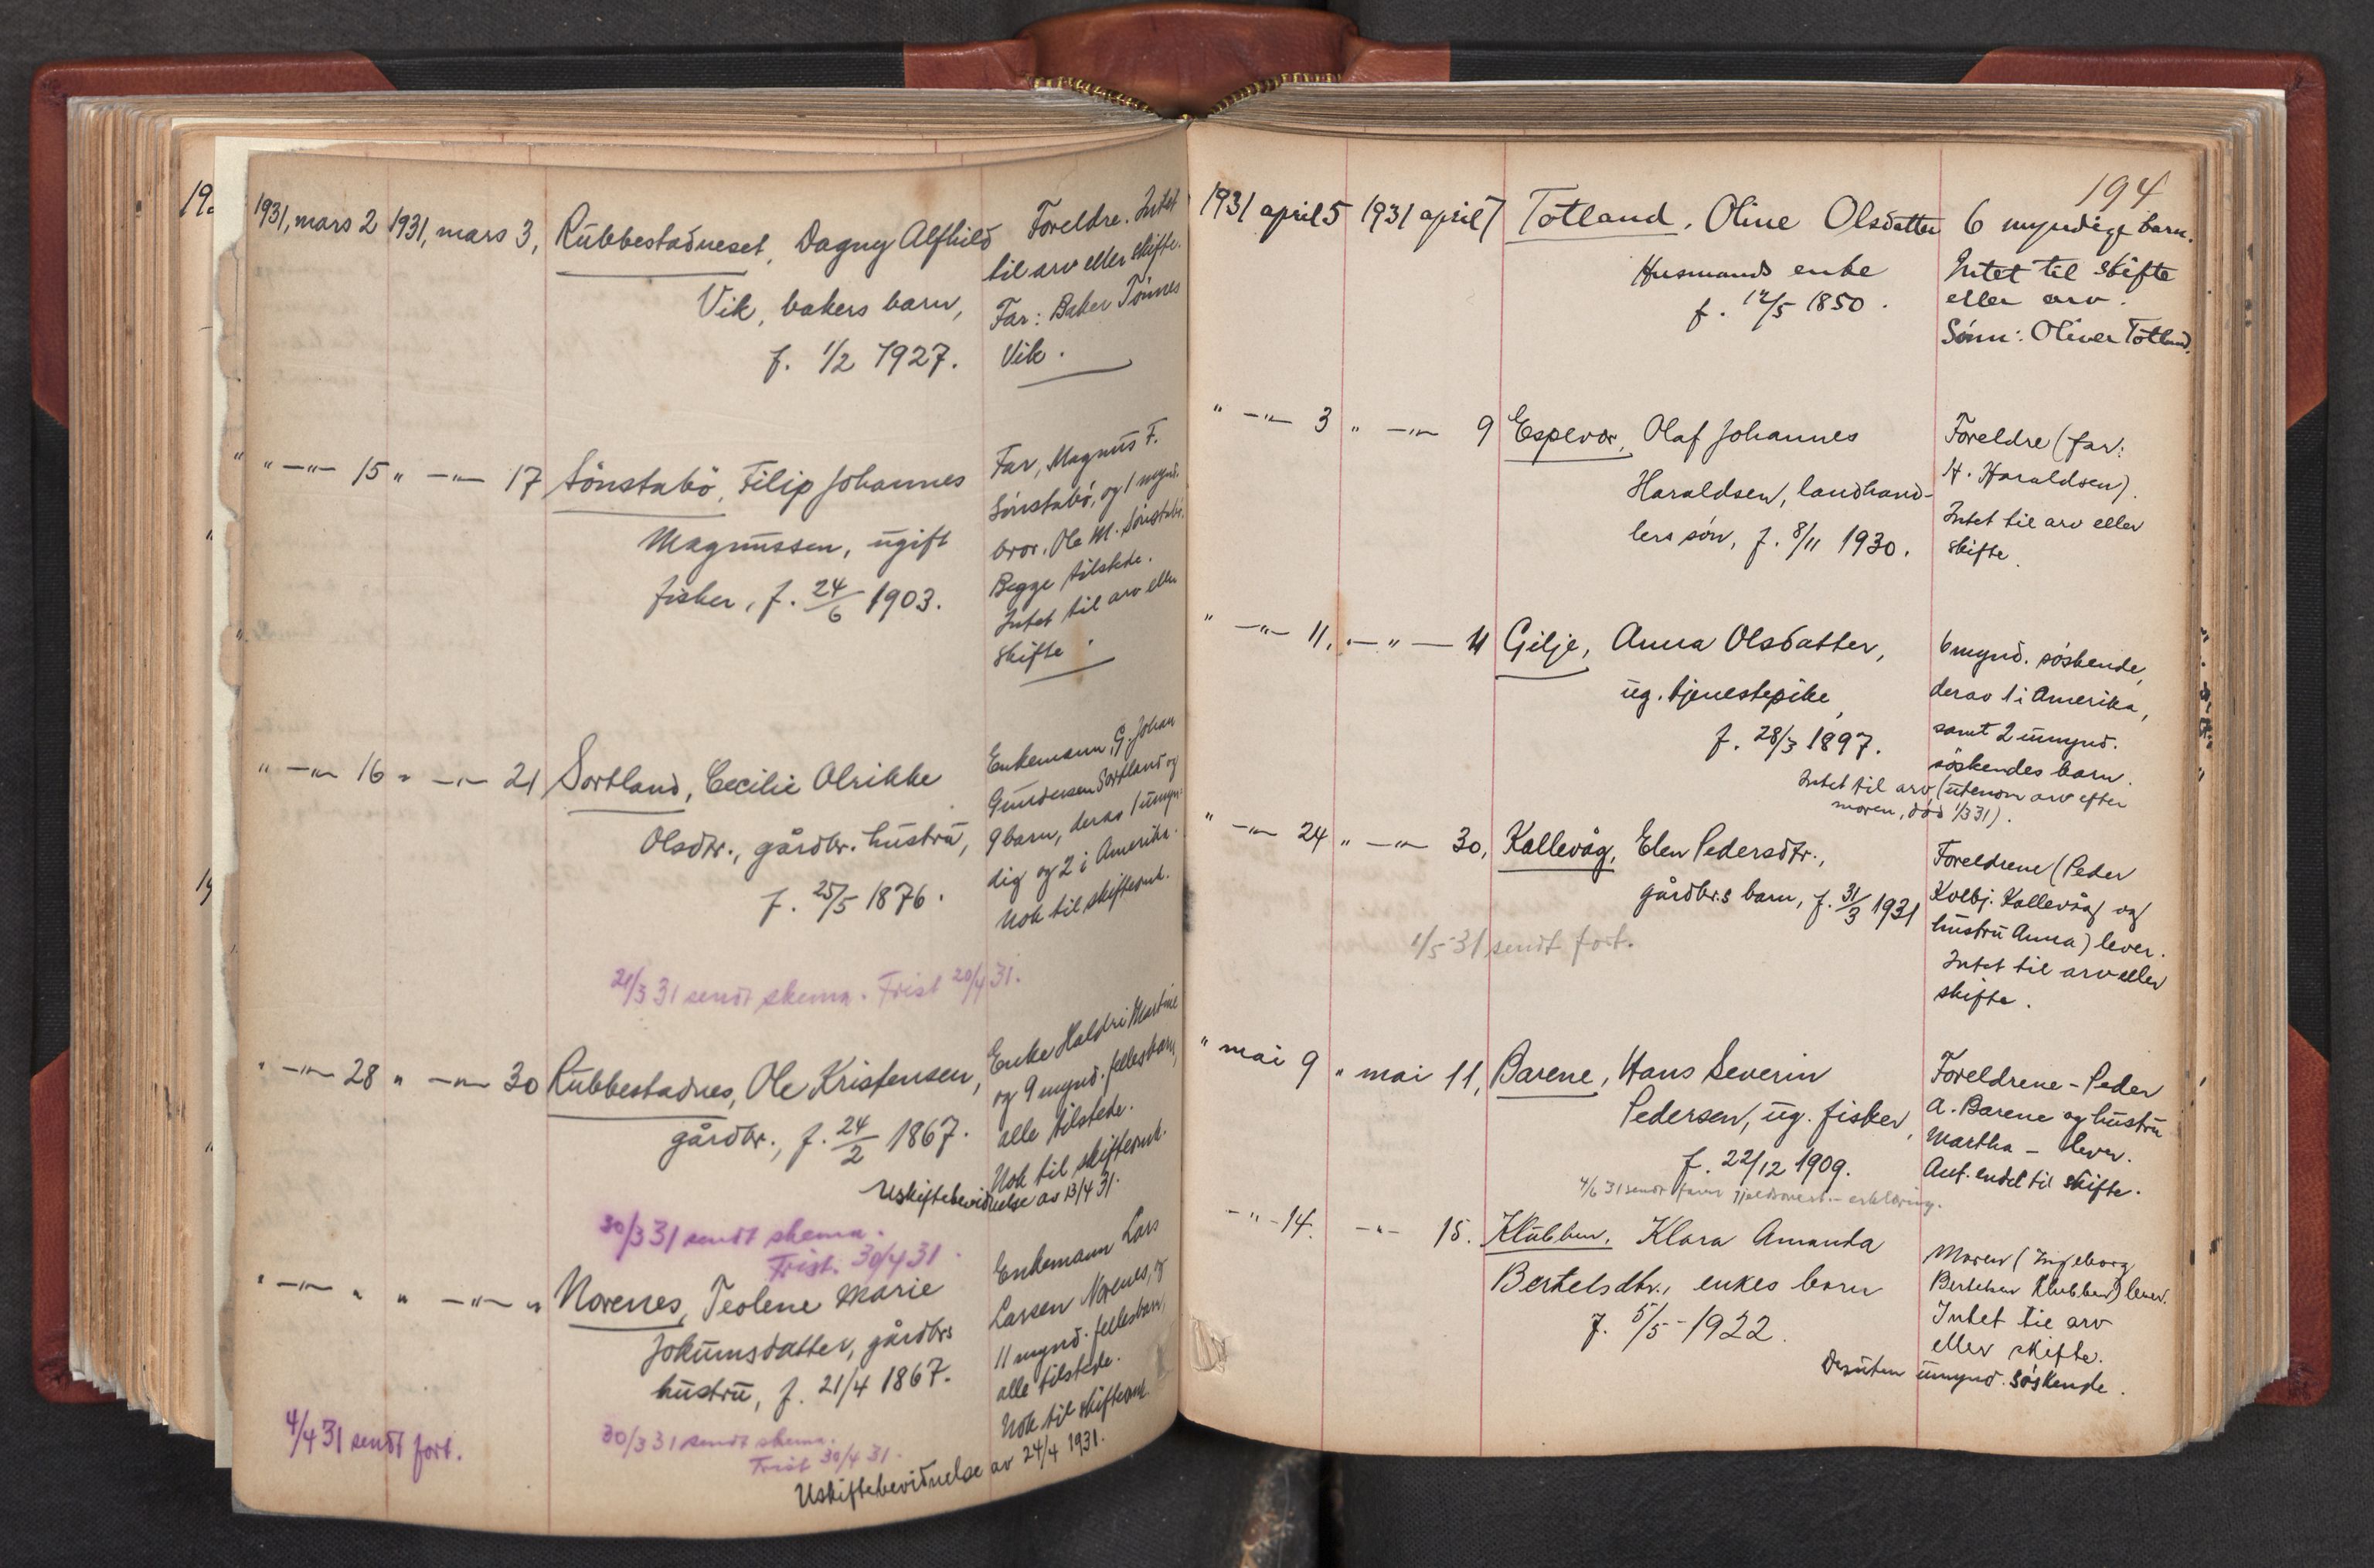 1931, mars 2 1931, mars 3, Rubbestadneset, Dagny Alfhild Foreldre. Intet
til arv eller skifte.
Vik, bakers barn, Far: Baker Tönnes
f. 1/2 1927. Vik.
" —"— 15 " —"— 17 Sönstabö, Filip Johannes Far, Magnus F.
Sönstabö, og 1 mynd.
Magnussen, ugift bror, Ole M. Sönstabö.
Begge tilstede.
fisker, f. 24/6 1903. Intet til arv eller
skifte.
" —"— 16 " —"— 21 Sortland, Cecilie Olrikke Enkemann, G. Johan
Gundersen Sortland og
Olsdtr., gårdbr. hustru, 9 barn, derav 1 umyn-
dig og 2 i Amerika.
f. 25/5 1876. Nok til skifteomk.
21/3 31 sendt skema. Frist 20/4 31.
" —"— 28 " —"— 30 Rubbestadnes, Ole Kristensen, Enke Haldri Martine
og 9 mynd. fellesbarn,
gårdbr., f. 24/2 1867. alle tilstede.
Nok til skifteomk.
Uskiftebevidnelse av 13/4 31.
30/3 31 sendt skema.
Frist. 30/4 31.
" —"— " " —"— " Norenes, Teoline Marie Enkemann Lars
Larsen Norenes, og
Jokumsdatter, gårdbrs 11 mynd. fellesbarn,
hustru, f. 21/4 1867. alle tilstede.
Nok til skifteomk.
4/4 31 sendt fort. 30/3 31 sendt skema.
Frist 30/4 31.
Uskiftebevidnelse av 24/4 1931.
194
1931 april 5 1931 april 7 Totland, Oline Olsdatter 6 myndige barn.
Husmands enke Intet til skifte
f. 12/5 1850. eller arv.
Sönn: Oliver Totland.
" —"— 3 " —"— 9 Espevær, Olaf Johannes Foreldre (far:
Haraldsen, landhand- H. Haraldsen).
Intet til arv eller
lers sön, f. 8/11 1930. skifte.
" —"— 11, " —"— 11 Gilje, Anna Olsdatter, 6 mynd. söskende,
ug. tjenestepike, derav 1 i Amerika,
f. 28/3 1897. samt 2 umynd.
söskendes barn.
Intet til arv (utenom arv efter
moren, död 1/3 31).
" —"— 24 " —"— 30, Kallevåg, Elen Pedersdtr., Foreldrene (Peder
gårdbr.s barn, f. 31/3 1931 Kolbj. Kallevåg og
1/5 31 sendt fort. hustru Anna) lever.
Intet til arv eller
skifte.
" mai 9 " mai 11, Barene, Hans Severin Foreldrene - Peder
Pedersen, ug. fisker, A. Barene og hustru
Martha - lever.
f. 22/12 1909. Ant. endel til skifte.
4/6 31 sendt erklæring.
— " — 14. — " — 15. Klubben, Klara Amanda Moren (Ingeborg
Bertelsdtr., enkes barn Bertelsen Klubben) lever.
f. 5/5 - 1922. Intet til arv
eller skifte.
Desuten umynd. söskende.